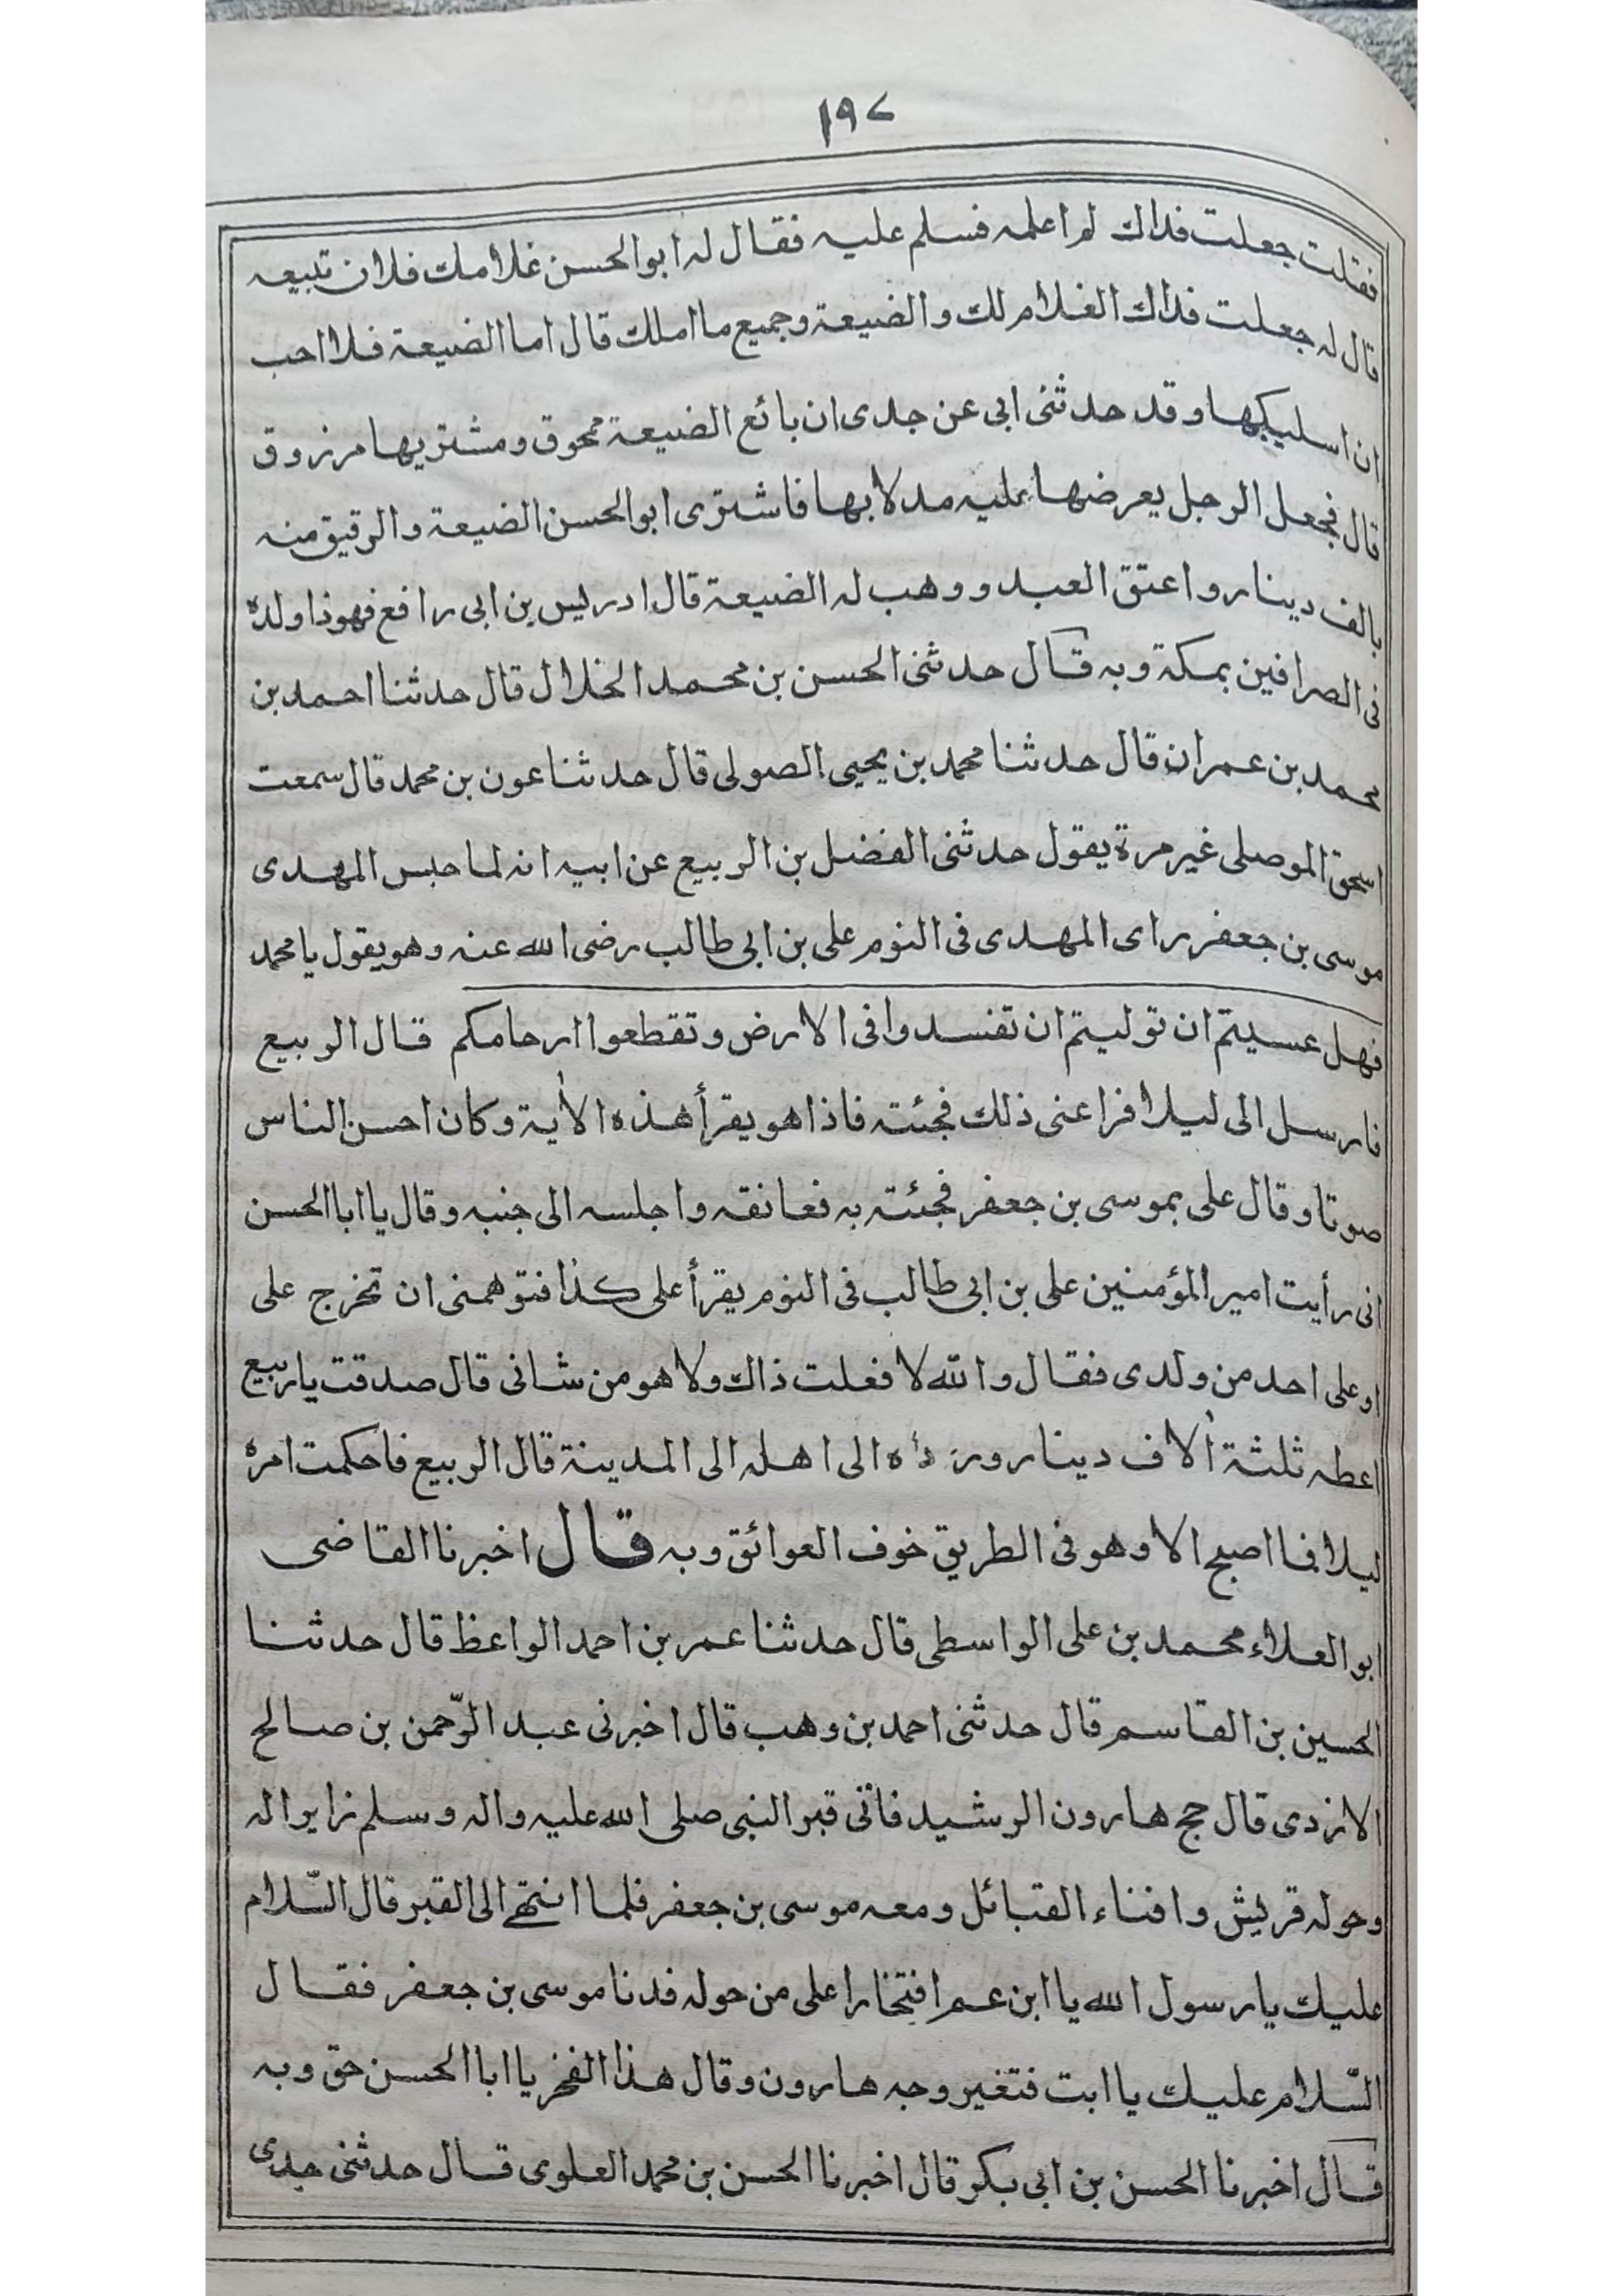 ١٩٧
فقلت جعلت فداك لم اعلمه فسلم عليه فقال له ابو الحسن غلامك فلان تبيعه
قال له جعلت فداك الغلام لك والضيعة وجميع ما املك قال اما الضيعة فلا احب
ان اسلبكها وقد حدثنى ابى عن جدى ان بائع الضيعة ممحوق ومشتريها مرزوق
قال فجعل الرجل يعرضها عليه مدلا بها فاشترى ابو الحسن الضيعة والرقيق منه
بالف دينار واعتق العبد ووهب له الضيعة قال ادريس بن ابى رافع فهوذا ولده
فى الصرافين بمكة وبه قال حدثنى الحسن بن محمد الخلال قال حدثنا احمد بن
محمد بن عمران قال حدثنا محمد بن يحيى الصولى قال حدثنا عون بن محمد قال سمعت
اسحق الموصلى غير مرة يقول حدثنى الفضل بن الربيع عن ابيه انه لما حبس المهدى
موسى بن جعفر راى المهدى فى النوم على بن ابى طالب رضى الله عنه وهو يقول يا محمد
فهل عسيتم ان توليتم ان تفسدوا فى الارض وتقطعوا ارحامكم قال الربيع
فارسل الى ليلا فراعنى ذلك فجئته فاذا هو يقرأ هذه الاية وكان احسن الناس
صوتا وقال على بموسى بن جعفر فجئته به فعانقه واجلسه الى جنبه وقال يا ابا الحسن
انى رأيت امير المؤمنين على بن ابى طالب فى النوم يقرأ على كذا فتوهمنى ان تخرج على
او على احد من ولدى فقال والله لا فعلت ذاك ولا هو من شانى قال صدقت يا ربيع
اعطه ثلثة الاف دينار ورده الى اهله الى المدينة قال الربيع فاحكمت امره
ليلا فما اصبح الا وهو فى الطريق خوف العوائق وبه قال اخبرنا القاضى
ابو العلاء محمد بن على الواسطى قال حدثنا عمر بن احمد الواعظ قال حدثنا
الحسين بن القاسم قال حدثنى احمد بن وهب قال اخبرنى عبد الرّحمن بن صالح
الازدى قال حج هارون الرشيد فاتى قبر النبى صلى الله عليه واله وسلم زايرا له
وحوله قريش وافناء القبائل ومعه موسى بن جعفر فلما انتهى الى القبر قال السّلام
عليك يا رسول الله يا ابن عم افتخارا على من حوله فدنا موسى بن جعفر فقال
السّلام عليك يا ابت فتغير وجه هارون وقال هذا الفخر يا ابا الحسن حق وبه
قال اخبرنا الحسن بن ابى بكر قال اخبرنا الحسن بن محمد العلوى قال حدثنى جدى